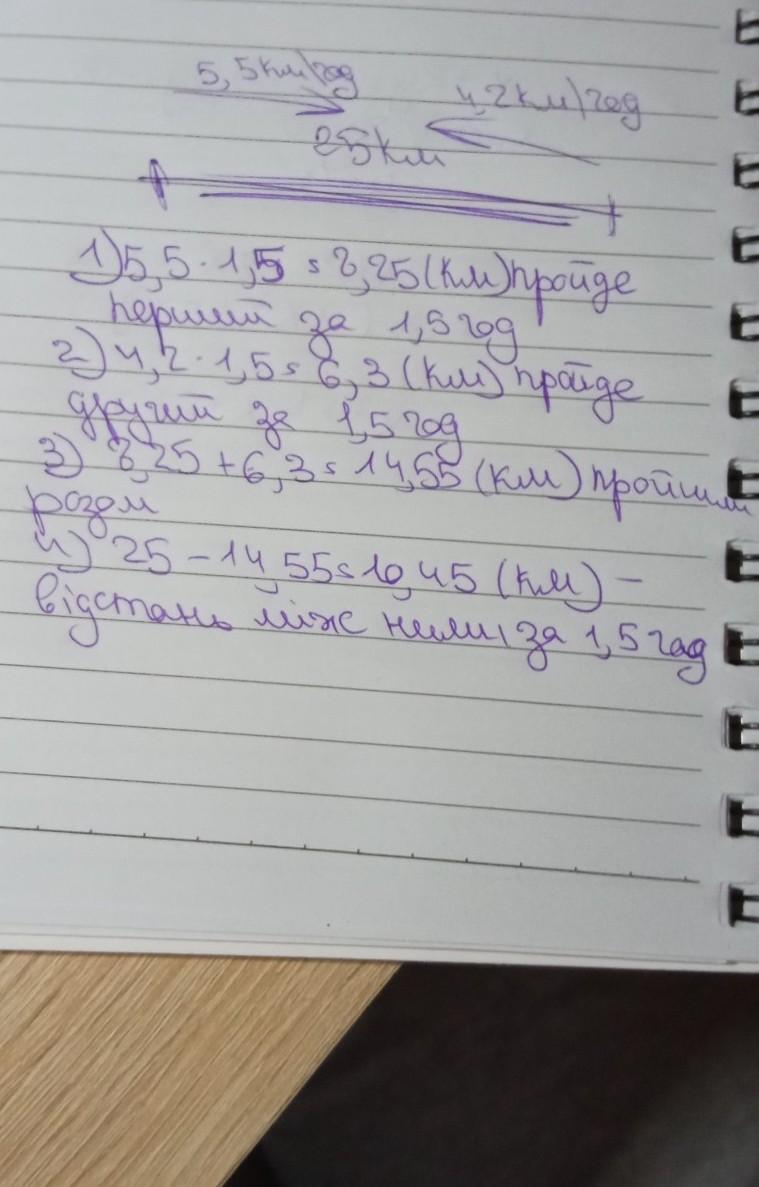 5,5км/год
4,2км/год
25км
1) 5,5 · 1,5 = 8,25 (км) пройде
перший за 1,5 год
2) 4,2 · 1,5 = 6,3 (км) пройде
другий за 1,5 год
3) 8,25 + 6,3 = 14,55 (км) пройшли
розом
4) 25 - 14,55 = 10,45 (км) -
відстань між ними, за 1,5 год